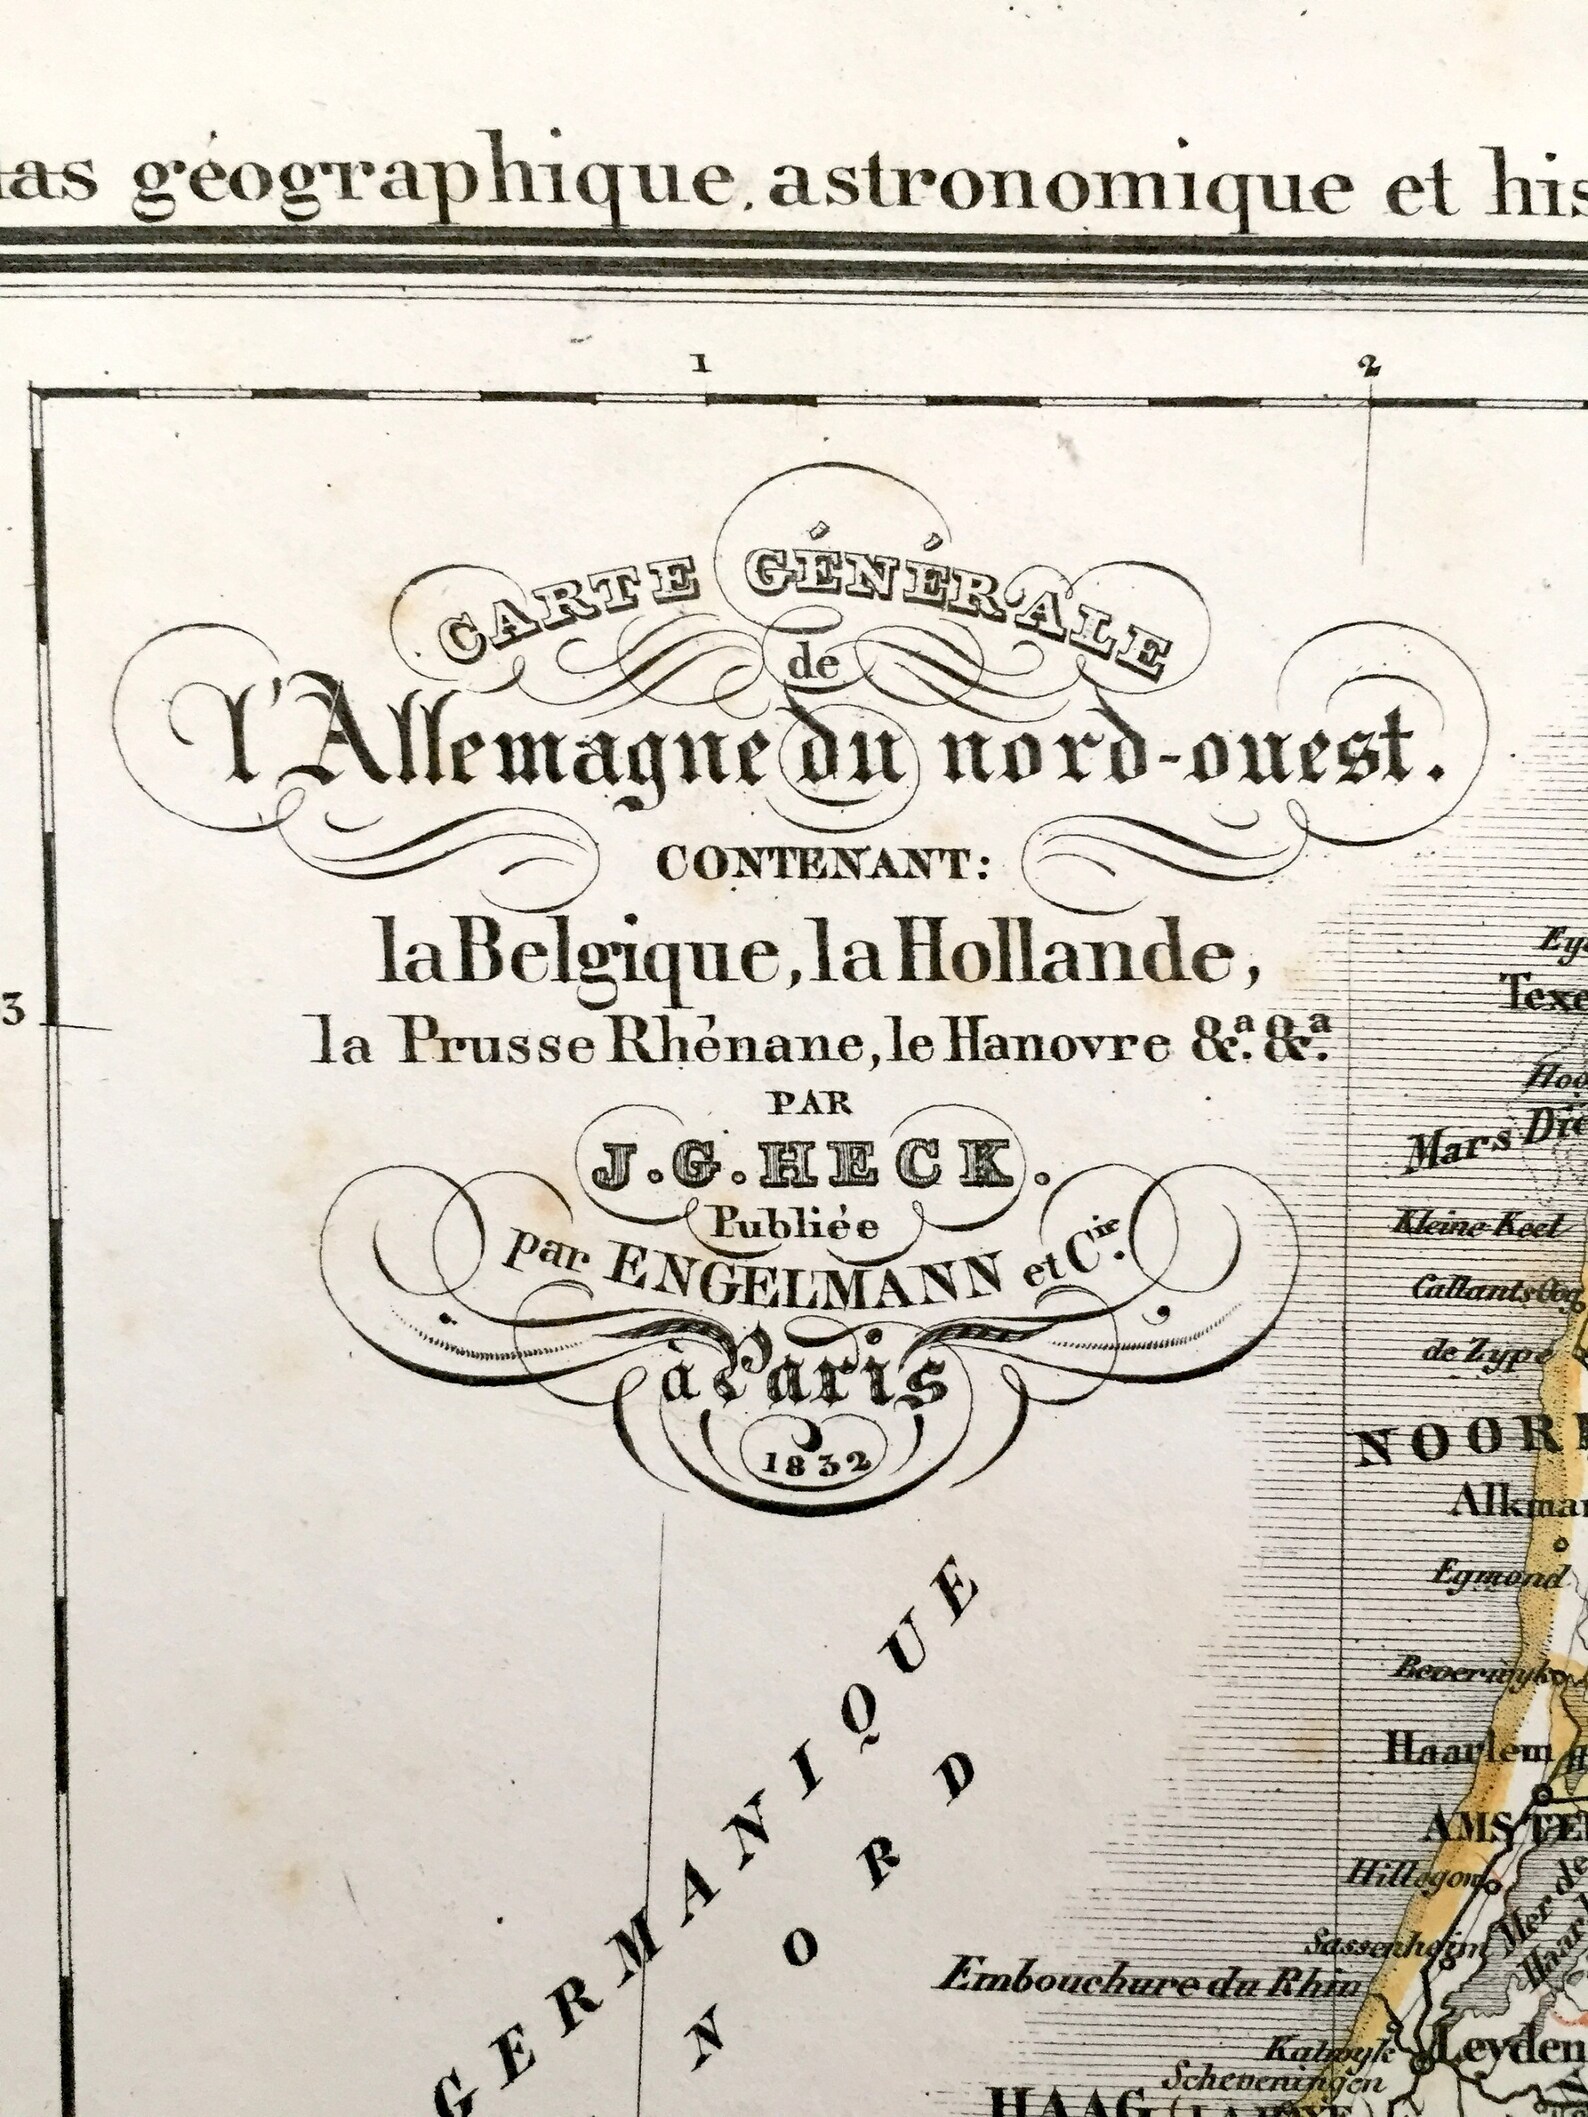 géographique, astronomique et
1
2
CARTE GÉNÉRALE
de
l'Allemagne du nord-ouest.
CONTENANT:
la Belgique, la Hollande,
3
la Prusse Rhénane, le Hanovre &.ª &.ª
PAR
J. G. HECK.
Publiée
par ENGELMANN et Cie.
à Paris
1832
Mars Die
Kleine Keet
Callants Oog
de Zype
Egmond
GERMANIQUE
NORD
Beverwyk
Haarlem
Hillegom
Sassenheim
Mer de
Embouchure du Rhin
Katwyk
Leyden
Scheveningen
HAAG (LA HAYE)